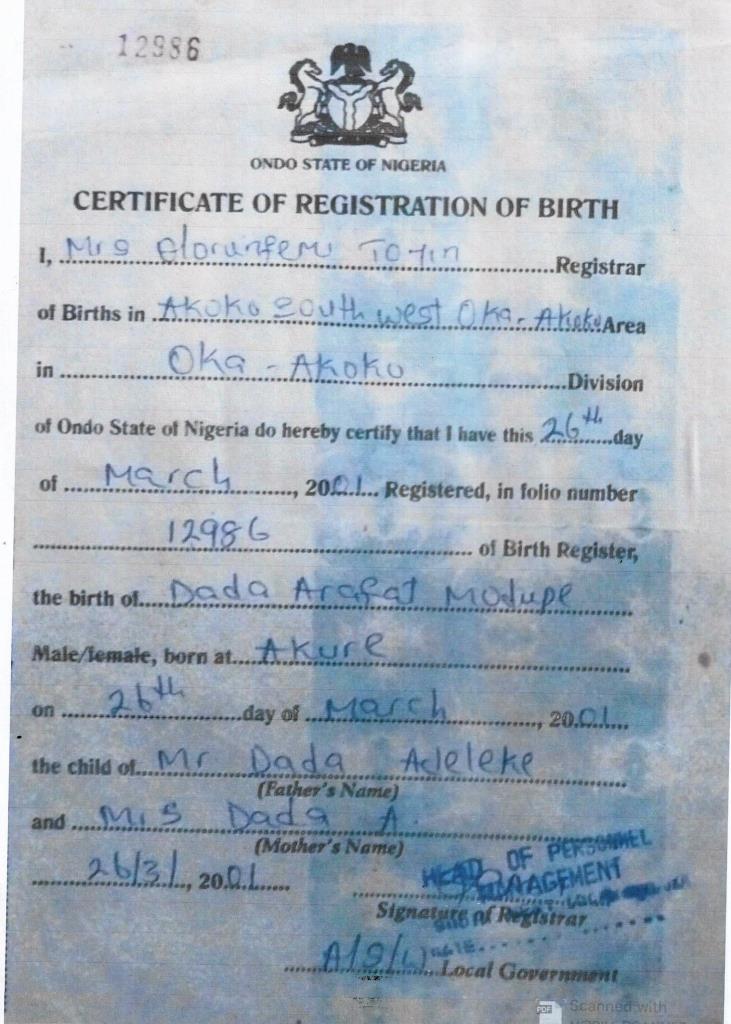 12986
ONDO STATE OF NIGERIA
CERTIFICATE OF REGISTRATION OF BIRTH
I, Mrs Olorunfemi Toyin Registrar
of Births in Akoko South west Oka-Akoko Area
in Oka - Akoko Division
of Ondo State of Nigeria do hereby certify that I have this 26th day
of March, 2001 Registered, in folio number
12986 of Birth Register,
the birth of Dada Arafat Modupe
Male/female, born at Akure
on 26th day of March, 2001
the child of Mr Dada Adeleke
(Father's Name)
and Mrs Dada A.
(Mother's Name)
26/3/, 2001
HEAD OF PERSONNEL
MANAGEMENT
Signature of Registrar
Local Government
PDF Scanned with